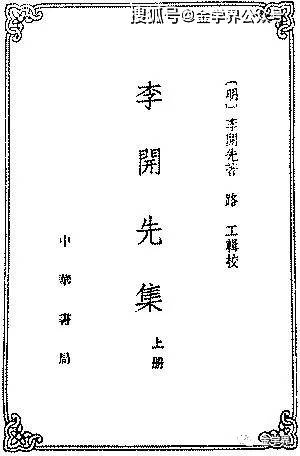 搜狐号@金学界公众号
〔明〕李開先著 路 工輯校
李開先集
上册
中華書局